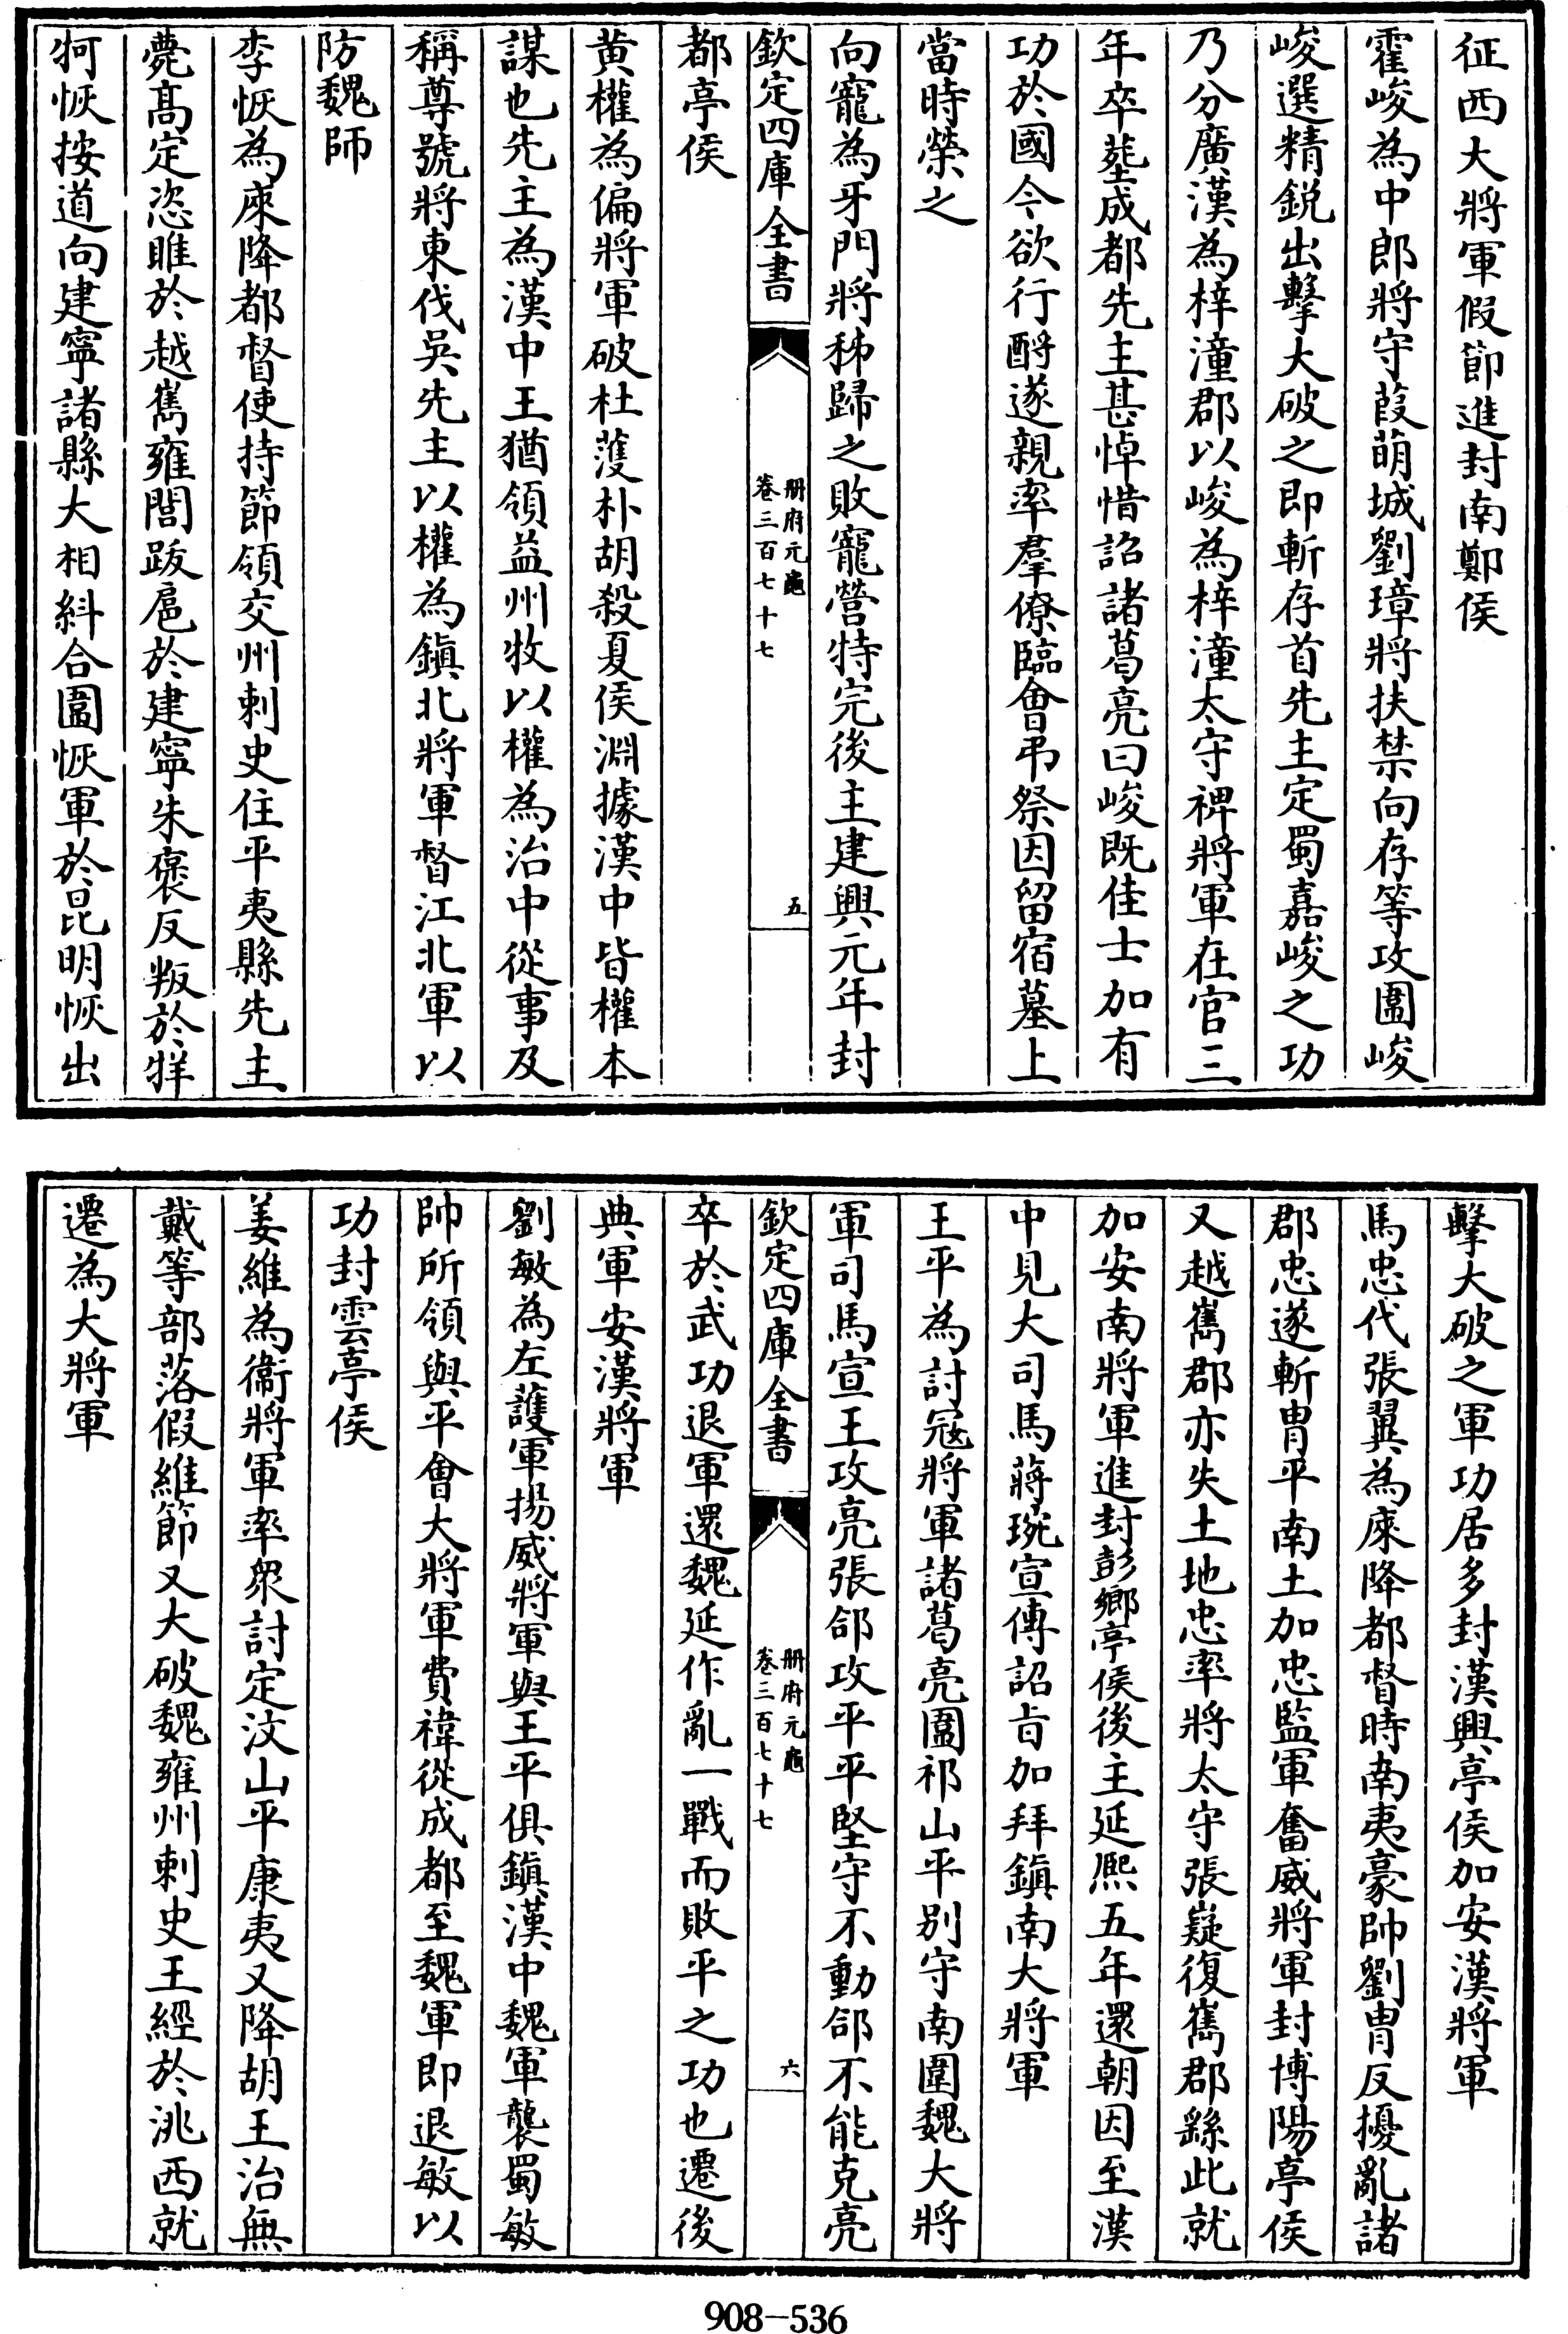 征西大將軍假節進封南鄭侯
霍峻為中郎將守葭萌城劉璋將扶禁向存等攻圍峻
峻選精鋭出擊大破之即斬存首先主定蜀嘉峻之功
乃分廣漢為梓潼郡以峻為梓潼太守裨將軍在官三
年卒塟成都先主甚悼惜詔諸葛亮曰峻既佳士加有
功於國今欲行酹遂親率羣僚臨會弔祭因留宿墓上
當時榮之
向寵為牙門將秭歸之敗寵營特完後主建興元年封
欽定四庫全書
册府元龜
卷三百七十七
五
都亭侯
黄權為偏將軍破杜濩朴胡殺夏侯淵據漢中皆權本
謀也先主為漢中王猶領益州牧以權為治中從事及
稱尊號將東伐吳先主以權為鎮北將軍督江北軍以
防魏師
李恢為庲降都督使持節領交州刺史住平夷縣先主
薨髙定恣睢於越嶲雍闓跋扈於建寧朱褒反叛於牂
牁恢按道向建寧諸縣大相糾合圍恢軍於昆明恢出
擊大破之軍功居多封漢興亭侯加安漢將軍
馬忠代張翼為庲降都督時南夷豪帥劉胄反擾亂諸
郡忠遂斬胄平南土加忠監軍奮威將軍封博陽亭侯
又越嶲郡亦失土地忠率將太守張嶷復嶲郡繇此就
加安南將軍進封彭鄉亭侯後主延熈五年還朝因至漢
中見大司馬蔣琬宣傳詔旨加拜鎮南大將軍
王平為討寇將軍諸葛亮圍祁山平别守南圍魏大將
軍司馬宣王攻亮張郃攻平平堅守不動郃不能克亮
欽定四庫全書
册府元龜
卷三百七十七
六
卒於武功退軍還魏延作亂一戰而敗平之功也遷後
典軍安漢將軍
劉敏為左護軍揚威將軍與王平俱鎮漢中魏軍襲蜀敏
帥所領與平會大將軍費禕從成都至魏軍即退敏以
功封雲亭侯
姜維為衞將軍率衆討定汶山平康夷又降胡王治無
戴等部落假維節又大破魏雍州刺史王經於洮西就
遷為大將軍
908-536